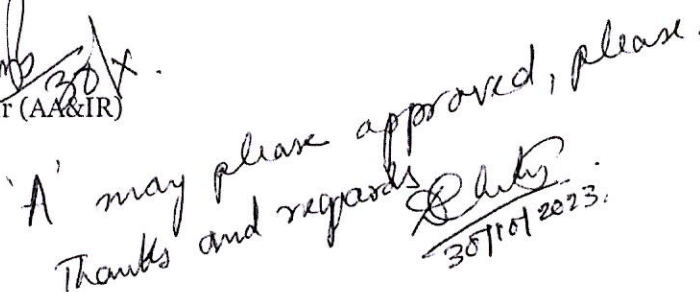 30/X.
r (AA&IR)
'A' may please approved, please.
Thanks and regards
30/10/2023.